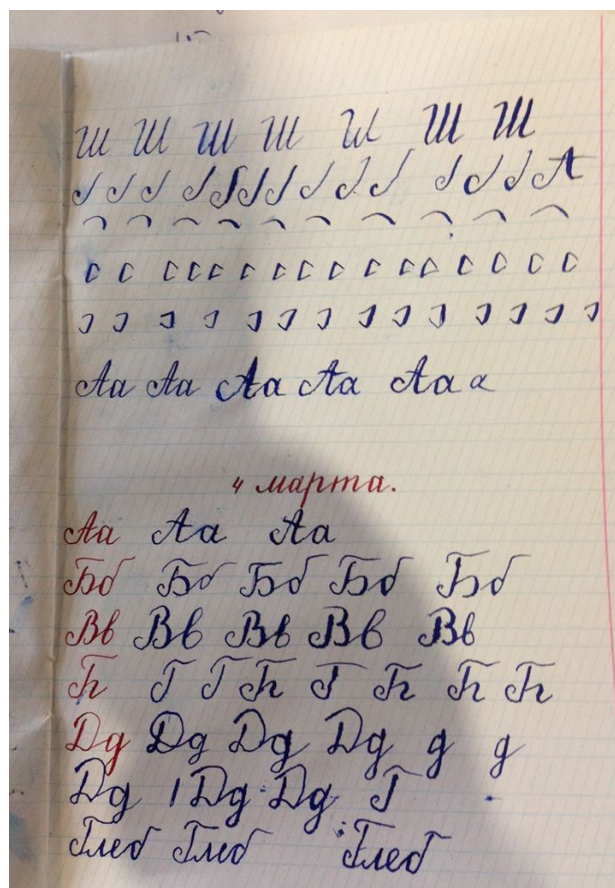 Ш Ш Ш Ш Ш Ш Ш
А
Аа Аа Аа Аа Аа а
4 марта.
Аа Аа Аа
Бб Бб Бб Бб Бб
Вв Вв Вв Вв Вв
Гг Г Г Гг Г Гг Гг Гг
Дд Дд Дд Дд д д
Дд Дд Дд Г
Глеб Глеб Глеб